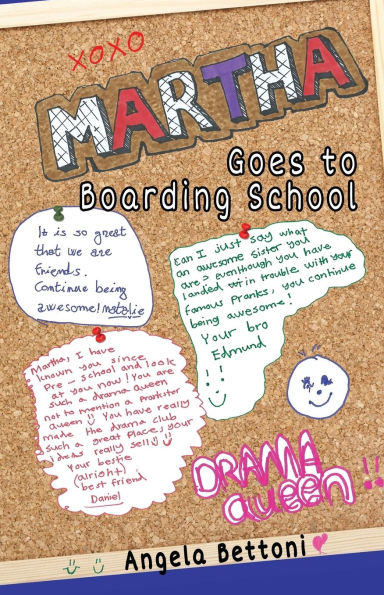 XOXO
MARTHA
Goes to
Boarding School
It is so great
that we are
friends.
Continue being
awesome! Natalie
Can I just say what
an awesome sister you
are > eventhough you have
landed in trouble with your
famous Pranks, you continue
being awesome!
Your bro
Edmund
! !
Martha, I have
known you since
Pre - school and look
at you now! You are
such a drama queen
not to mention a prankster
queen You have really
made the drama club
such a great place, your
ideas really sell
Your bestie
(alright)
(best friend
Daniel
DRAMA
queen !!
Angela Bettoni